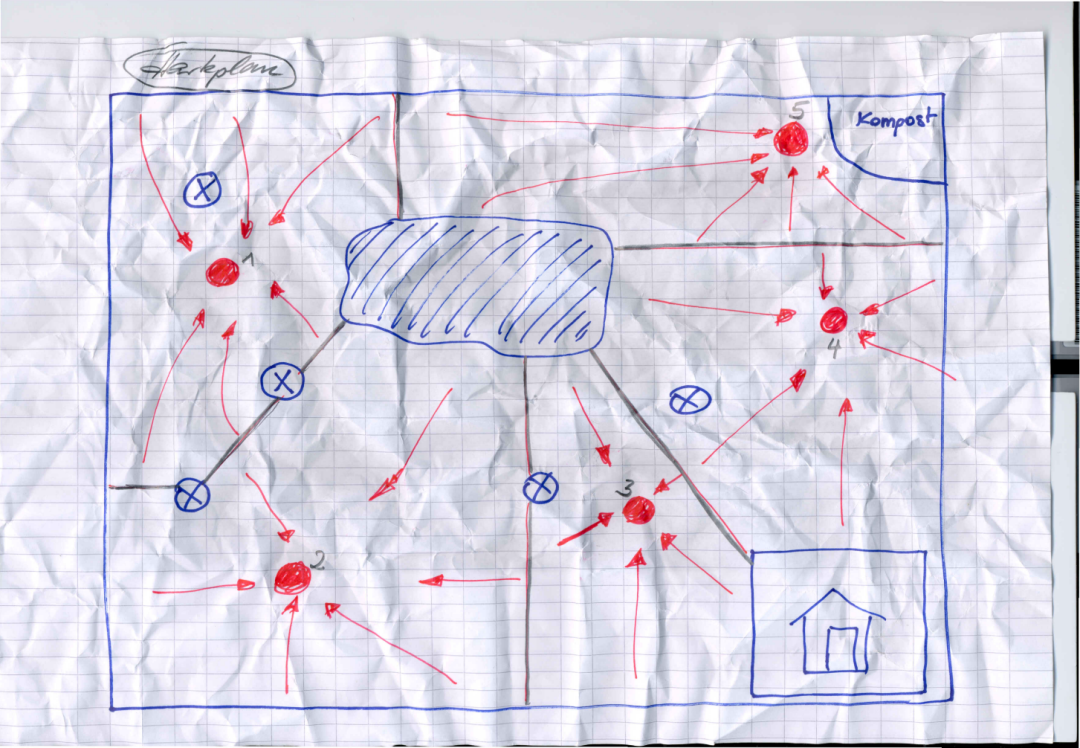 Harkplan
5
Kompost
1
4
3
2